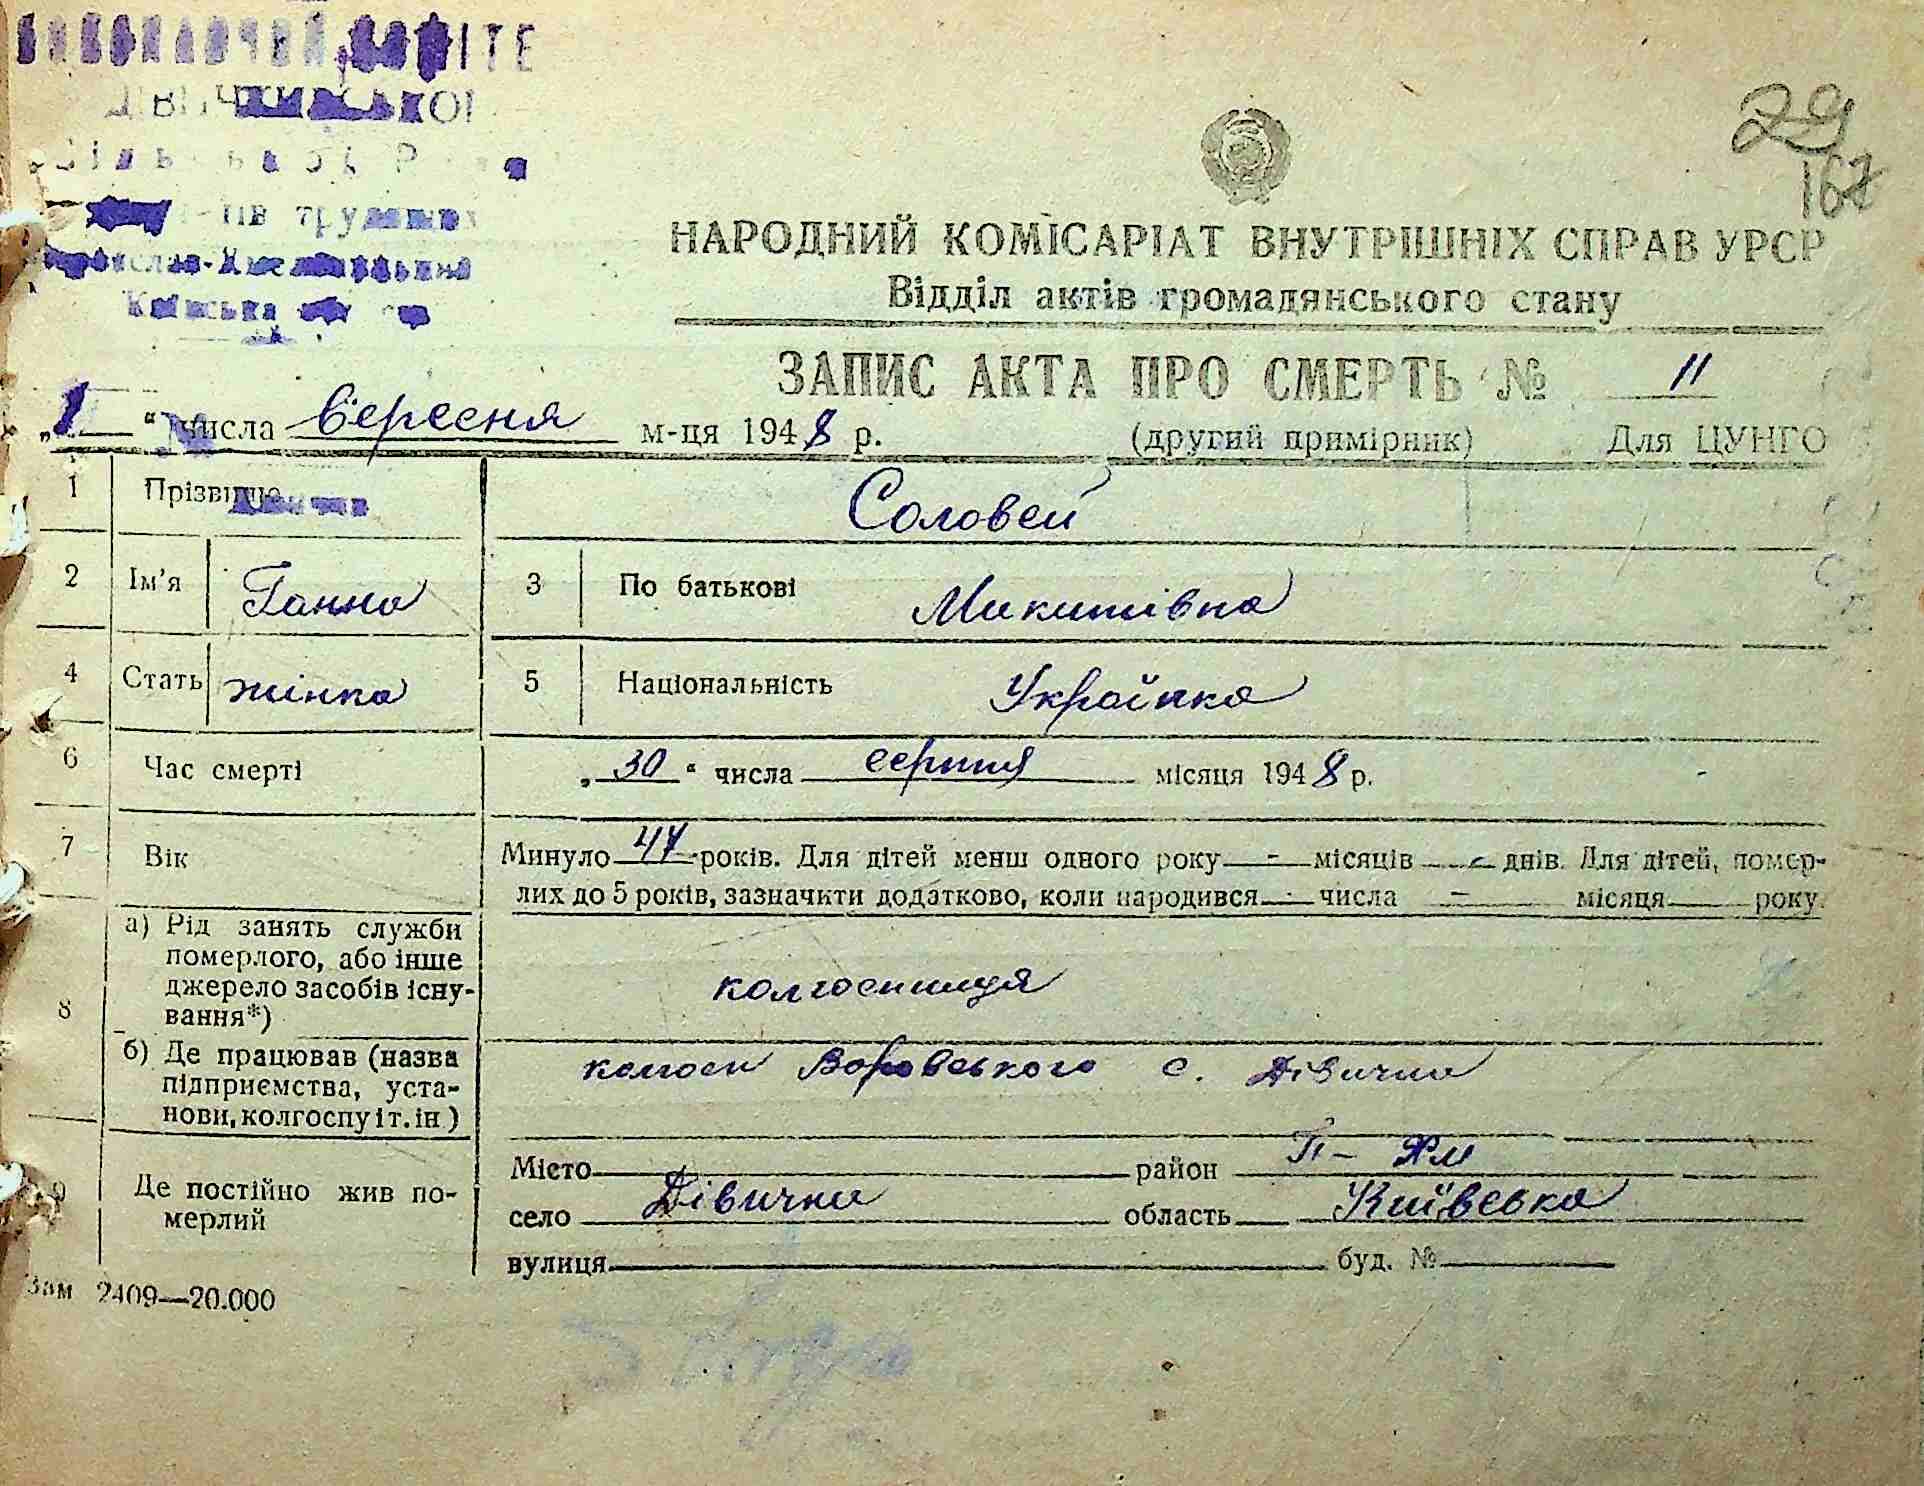 29
167
НАРОДНИЙ КОМІСАРІАТ ВНУТРІШНІХ СПРАВ УРСР
Відділ актів громадянського стану
ЗАПИС АКТА ПРО СМЕРТЬ № 11
„1“ числа вересня м-ця 1948 р. (другий примірник) Для ЦУНГО
1 Прізвище Соловей
2 Ім'я Ганна 3 По батькові Микитівна
4 Стать жінка 5 Національність Українка
6 Час смерті „30“ числа серпня місяця 1948 р.
7 Вік Минуло 47 років. Для дітей менш одного року - місяців - днів. Для дітей, помер-
лих до 5 років, зазначити додатково, коли народився - числа - місяця року
8 а) Рід занять служби
померлого, або інше
джерело засобів існу-
вання*) колгоспниця
б) Де працював (назва
підприємства, уста-
нови, колгоспу і т. ін) колгосп Воровського с. Дівички
9 Де постійно жив по-
мерлий
Місто район П- Хм
село Дівички область Київська
вулиця буд. №
Зам 2409—20.000